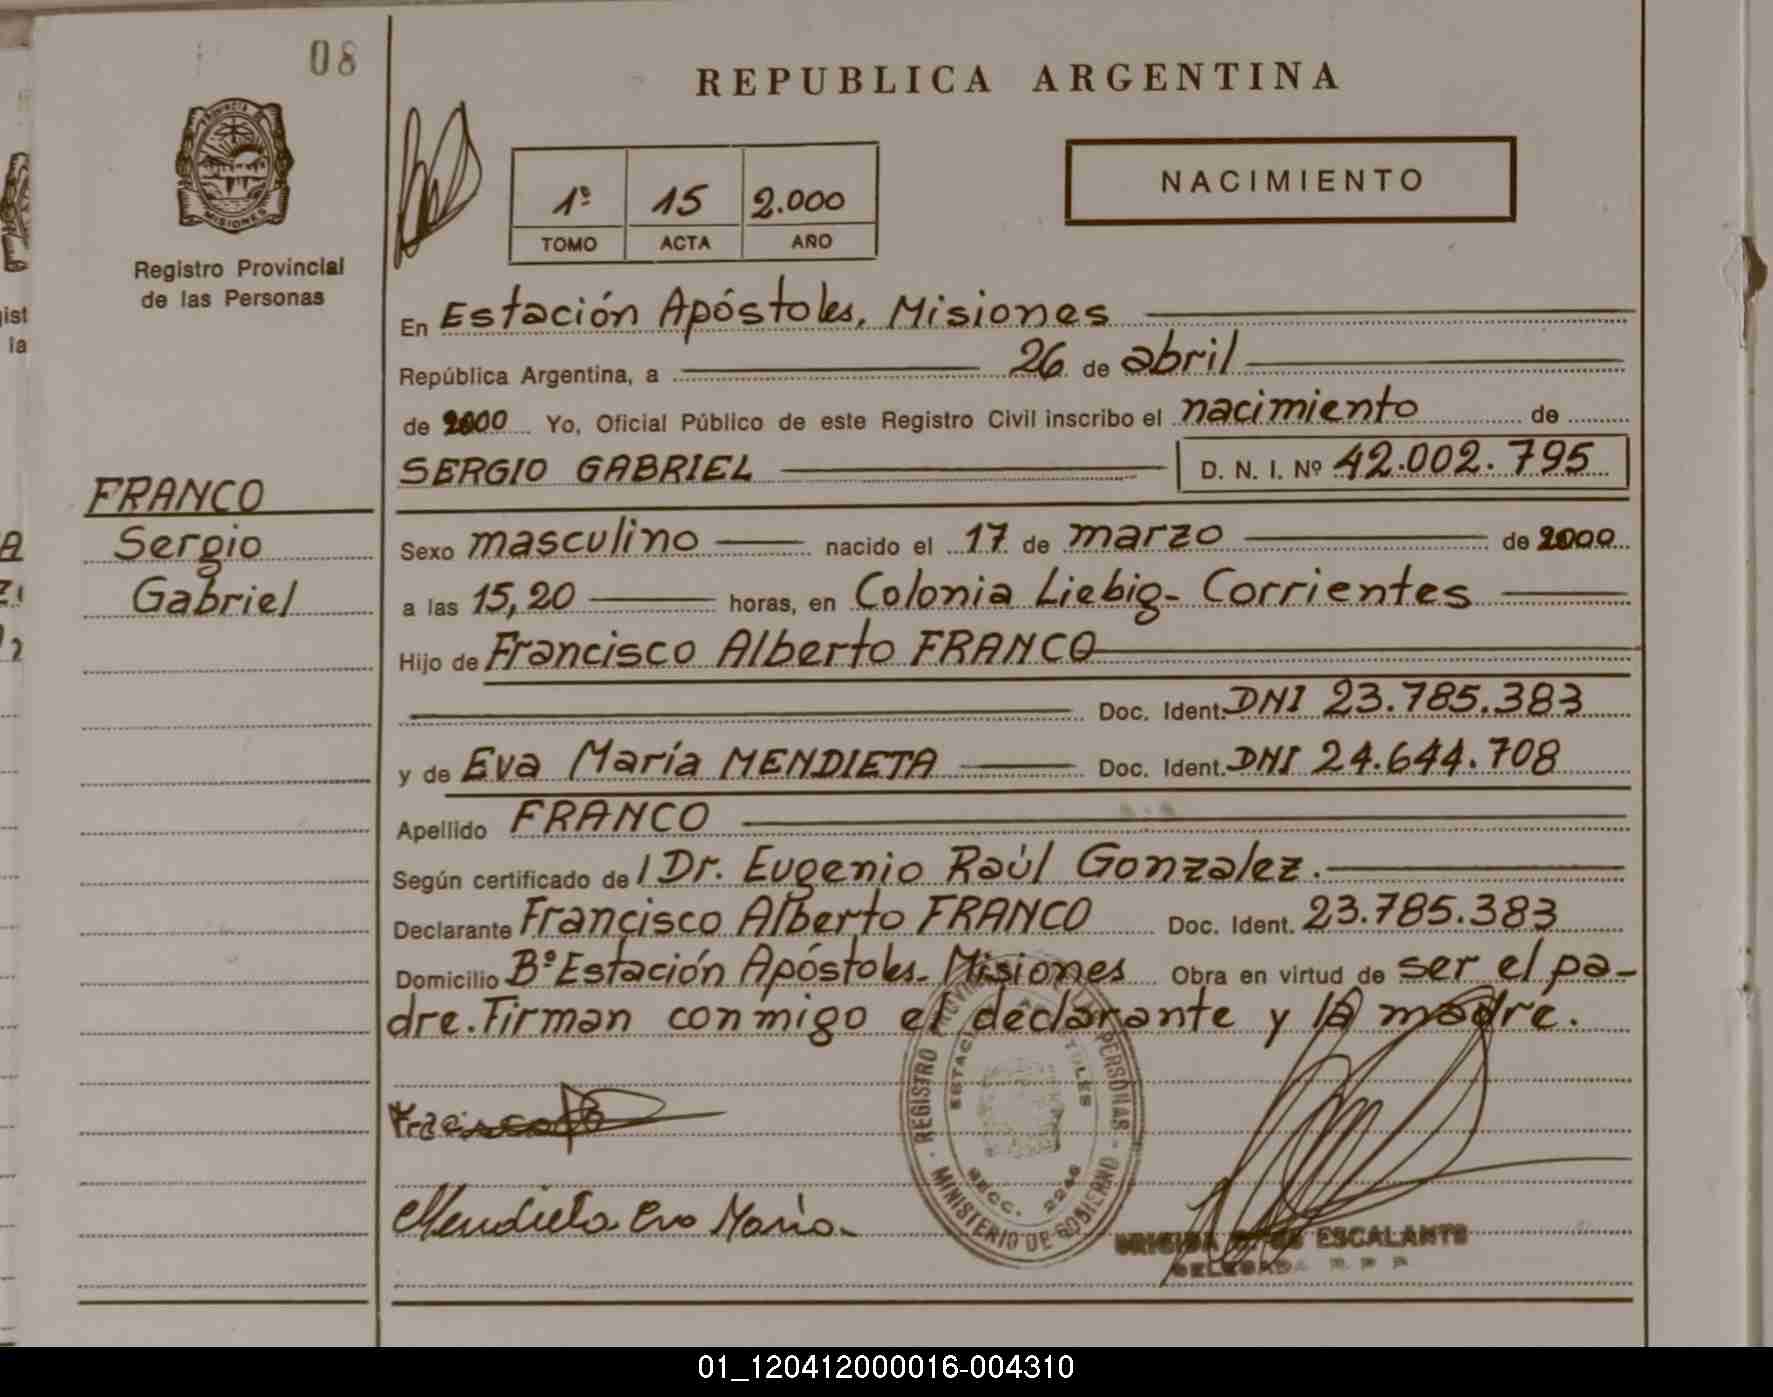 08
REPUBLICA ARGENTINA
PROVINCIA DE
MISIONES
Registro Provincial
de las Personas
1º 15 2.000
TOMO ACTA AÑO
NACIMIENTO
En Estación Apóstoles, Misiones
República Argentina, a 26 de abril
de 2000 Yo, Oficial Público de este Registro Civil inscribo el nacimiento de
SERGIO GABRIEL D. N. I. Nº 42.002.795
FRANCO
Sergio
Gabriel
Sexo masculino nacido el 17 de marzo de 2000
a las 15,20 horas, en Colonia Liebig- Corrientes
Hijo de Francisco Alberto FRANCO
Doc. Ident. DNI 23.785.383
y de Eva María MENDIETA Doc. Ident. DNI 24.644.708
Apellido FRANCO
Según certificado de l Dr. Eugenio Raúl Gonzalez.
Declarante Francisco Alberto FRANCO Doc. Ident. 23.785.383
Domicilio Bº Estación Apóstoles- Misiones Obra en virtud de ser el pa-
dre. Firman conmigo el declarante y la madre.
REGISTRO PROVINCIAL DE LAS PERSONAS - MINISTERIO DE GOBIERNO
ESTACION APOSTOLES
SECC. 2246
Mendieta Eva María.
ESCALANTE
DELEGADA R P P
01_120412000016-004310